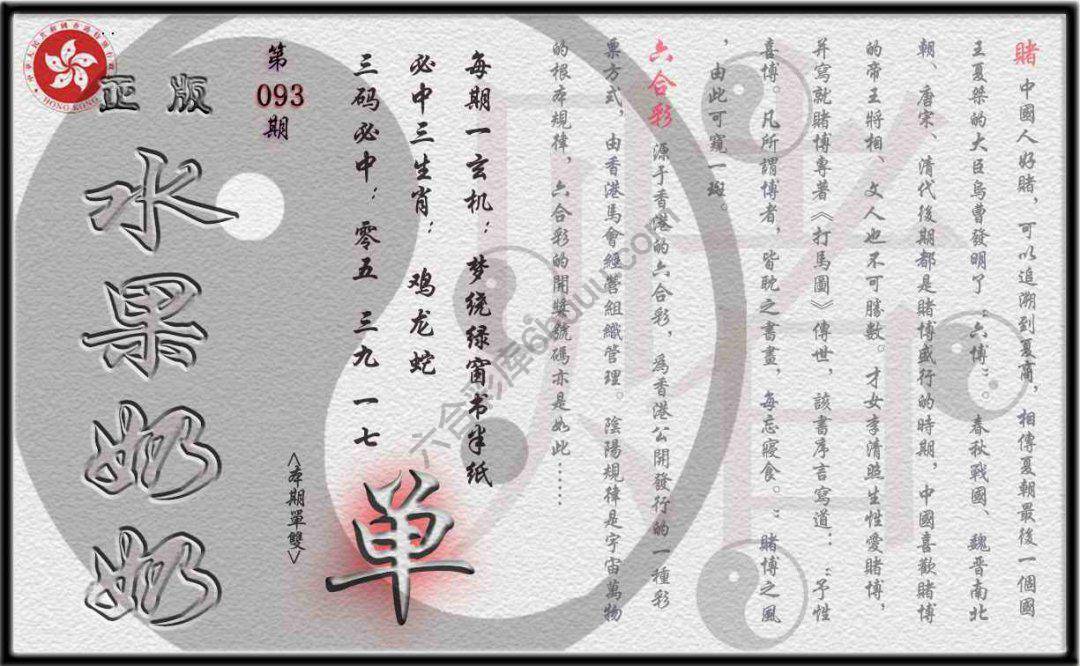 賭 中國人好賭，可以追溯到夏商，相傳夏朝最後一個國
王夏桀的大臣烏曹發明了“六博”。春秋戰國、魏晉南北
朝、唐宋、清代後期都是賭博盛行的時期，中國喜歡賭博
的帝王將相、文人也不可勝數。才女李清照生性愛賭博，
并寫就賭博專著《打馬圖》傳世，該書序言寫道：“予性
喜博。凡所謂博者，皆耽之書畫，每忘寢食。”賭博之風
，由此可窺一斑。
六合彩 源于香港的六合彩，為香港公開發行的一種彩
票方式，由香港馬會經營組織管理。陰陽規律是宇宙萬物
的根本規律，六合彩的開獎號碼亦是如此……
每期一玄机：梦绕绿窗书半纸
必中三生肖：鸡龙蛇
三码必中：零五 三九 一七
单
<本期單雙>
第
093
期
正版
水果奶奶
HONG KONG
六合彩库6kuuu.com